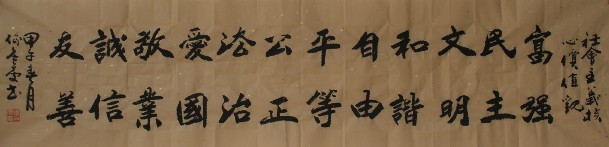 社會主義核
心價值觀
富强
民主
文明
和諧
自由
平等
公正
法治
愛國
敬業
誠信
友善
甲午